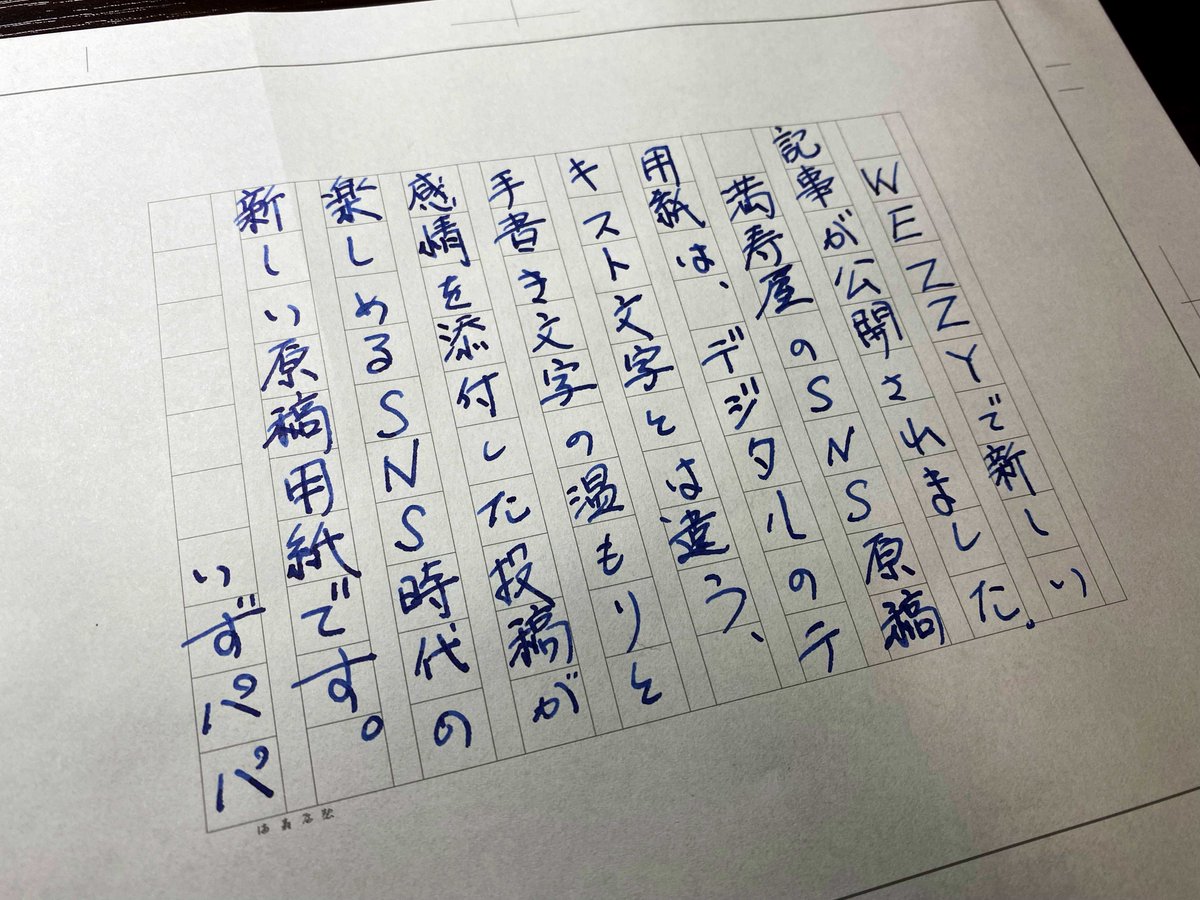 WEZZYで新しい
記事が公開されました。
満寿屋のSNS原稿
用紙は、デジタルのテ
キスト文字とは違う、
手書き文字の温もりと
感情を添付した投稿が
楽しめるSNS時代の
新しい原稿用紙です。
いずパパ